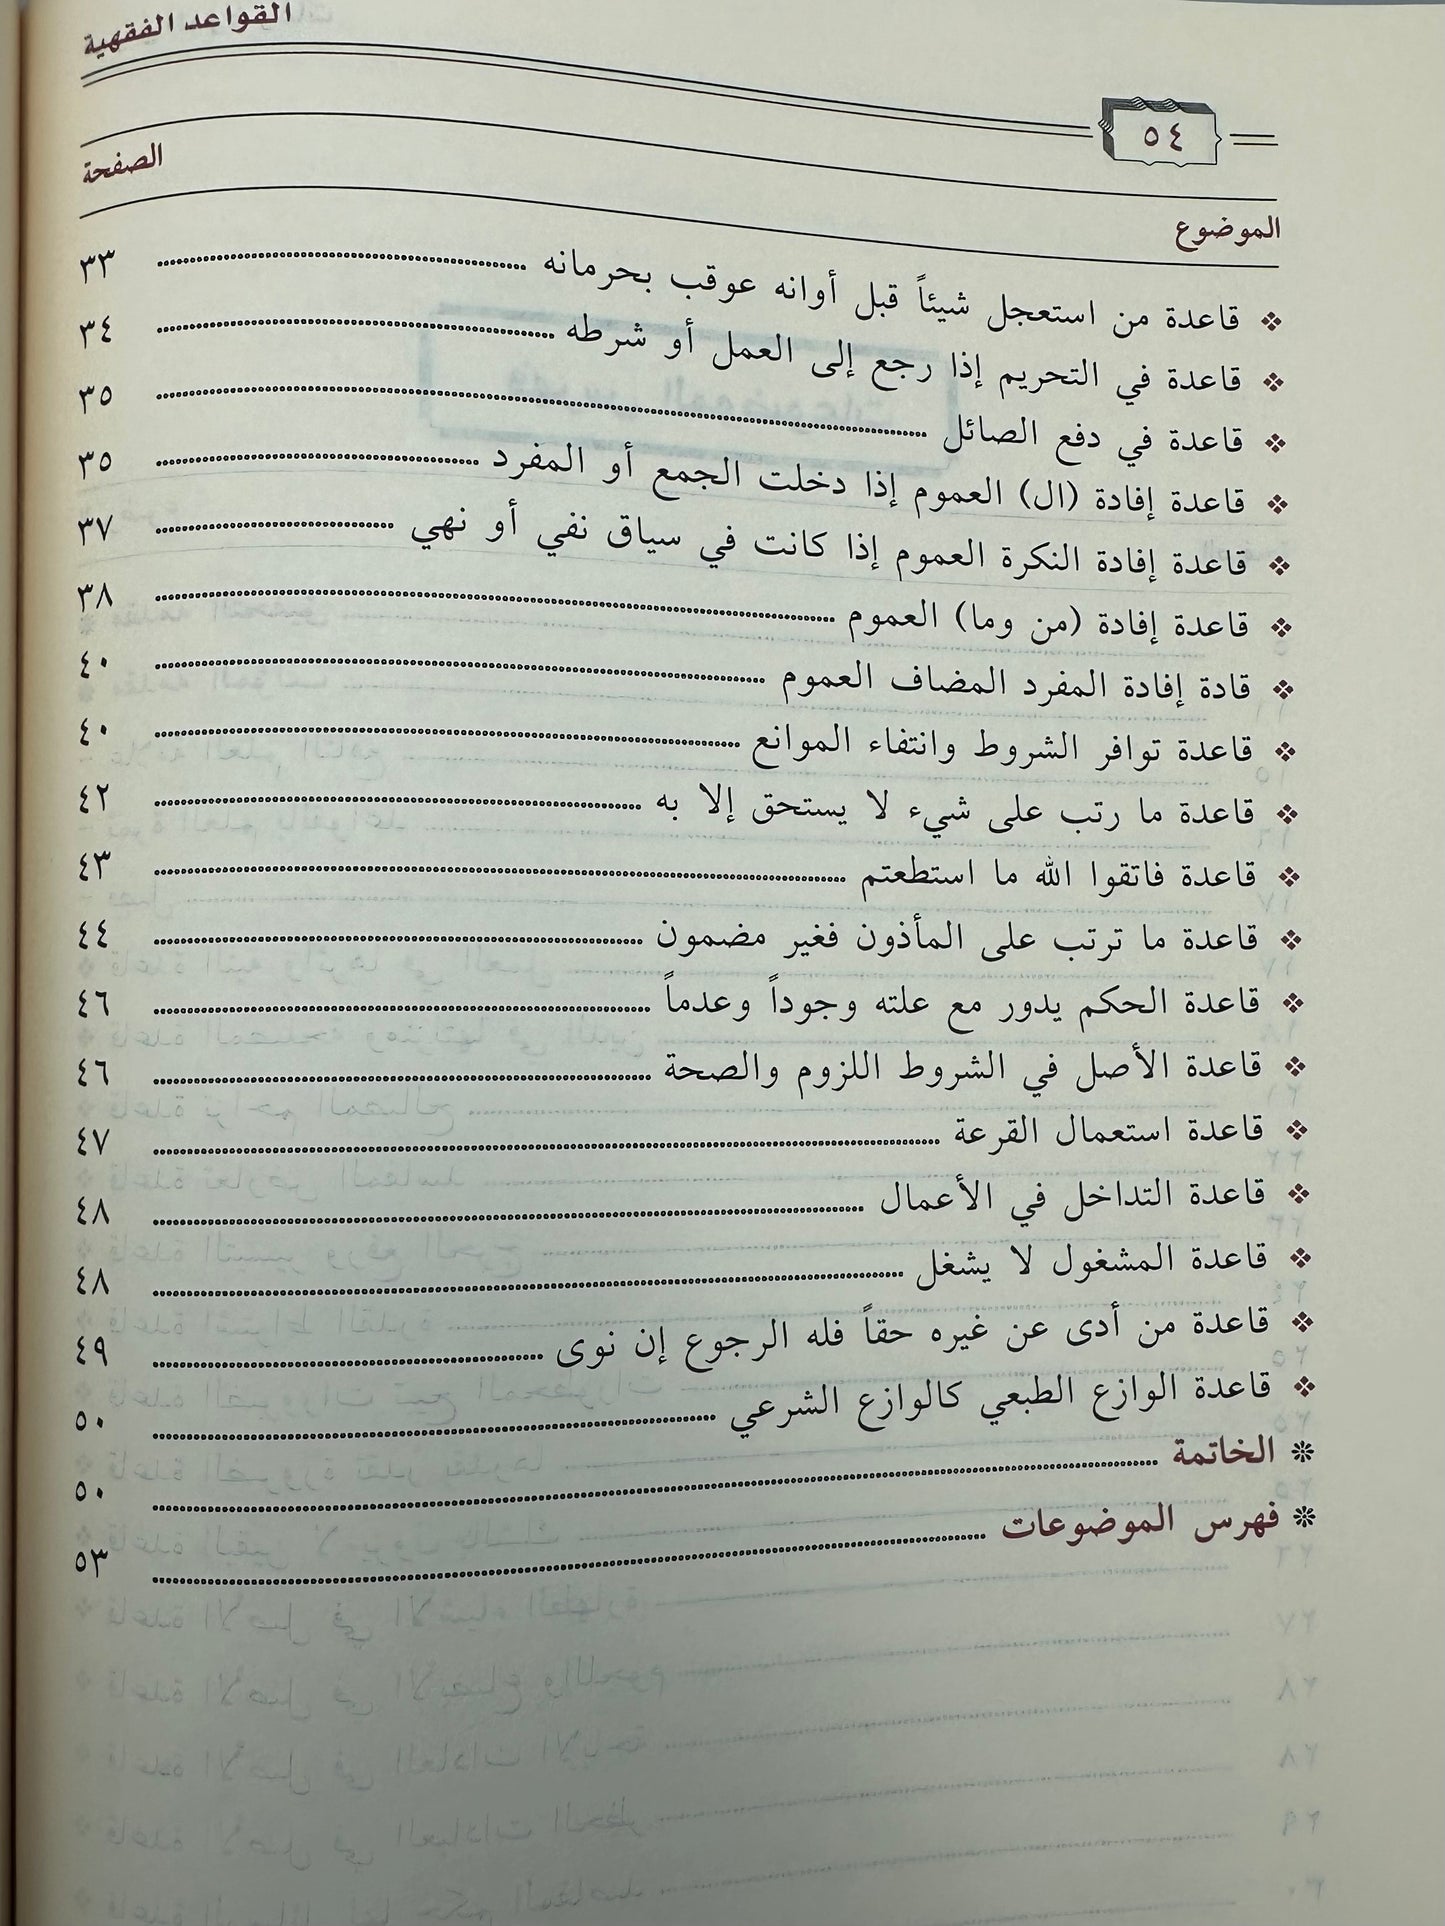 القواعد الفقهية
٥٤
الصفحة
الموضوع
❖ قاعدة من استعجل شيئاً قبل أوانه عوقب بحرمانه ٣٣
❖ قاعدة في التحريم إذا رجع إلى العمل أو شرطه ٣٤
❖ قاعدة في دفع الصائل ٣٥
❖ قاعدة إفادة (ال) العموم إذا دخلت الجمع أو المفرد ٣٥
❖ قاعدة إفادة النكرة العموم إذا كانت في سياق نفي أو نهي ٣٧
❖ قاعدة إفادة (من وما) العموم ٣٨
❖ قادة إفادة المفرد المضاف العموم ٤٠
❖ قاعدة توافر الشروط وانتفاء الموانع ٤٠
❖ قاعدة ما رتب على شيء لا يستحق إلا به ٤٢
❖ قاعدة فاتقوا الله ما استطعتم ٤٣
❖ قاعدة ما ترتب على المأذون فغير مضمون ٤٤
❖ قاعدة الحكم يدور مع علته وجوداً وعدماً ٤٦
❖ قاعدة الأصل في الشروط اللزوم والصحة ٤٦
❖ قاعدة استعمال القرعة ٤٧
❖ قاعدة التداخل في الأعمال ٤٨
❖ قاعدة المشغول لا يشغل ٤٨
❖ قاعدة من أدى عن غيره حقاً فله الرجوع إن نوى ٤٩
❖ قاعدة الوازع الطبعي كالوازع الشرعي ٥٠
❊ الخاتمة ٥٠
❊ فهرس الموضوعات ٥٣